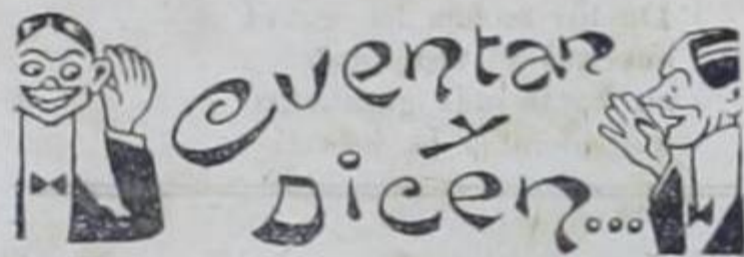 Cuentan
y
Dicen...